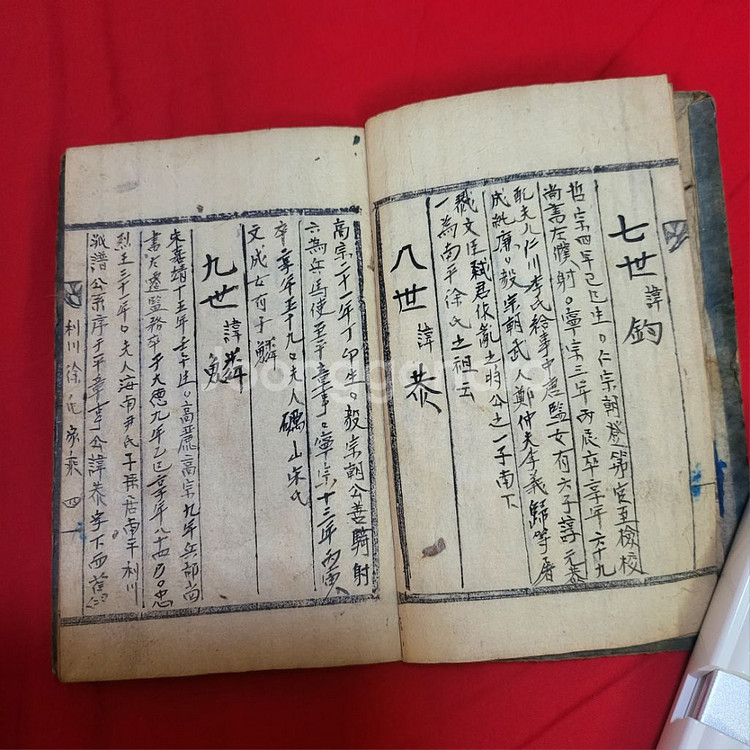 七世 諱鈞
哲宗四年己巳生。仁宗朝登第官至檢校
尚書左僕射。寧宗三年丙辰卒享年六十九
配夫人仁川李氏給事中唐監女有六子諱元恭
成純廉。毅宗朝武人鄭仲夫李義歸等屠
戮文臣弑君作亂之時公之一子南下
一為南平徐氏之祖云
八世 諱恭
高宗二十一年丁卯生。毅宗朝公善騎射
六為兵馬使至平章事。寧宗十三年丙寅
卒享年五十九。夫人礪山宋氏
文成女有子鱗
九世 諱鱗
宋嘉靖十五年壬午生。高麗高宗九年兵部尚
書左遷監務卒于大德九年乙巳享年八十四。忠
烈王三十一年。夫人海南尹氏子孫居南平利川
派譜公系序于平章事公諱恭字下而舊
利川徐氏家乘 四